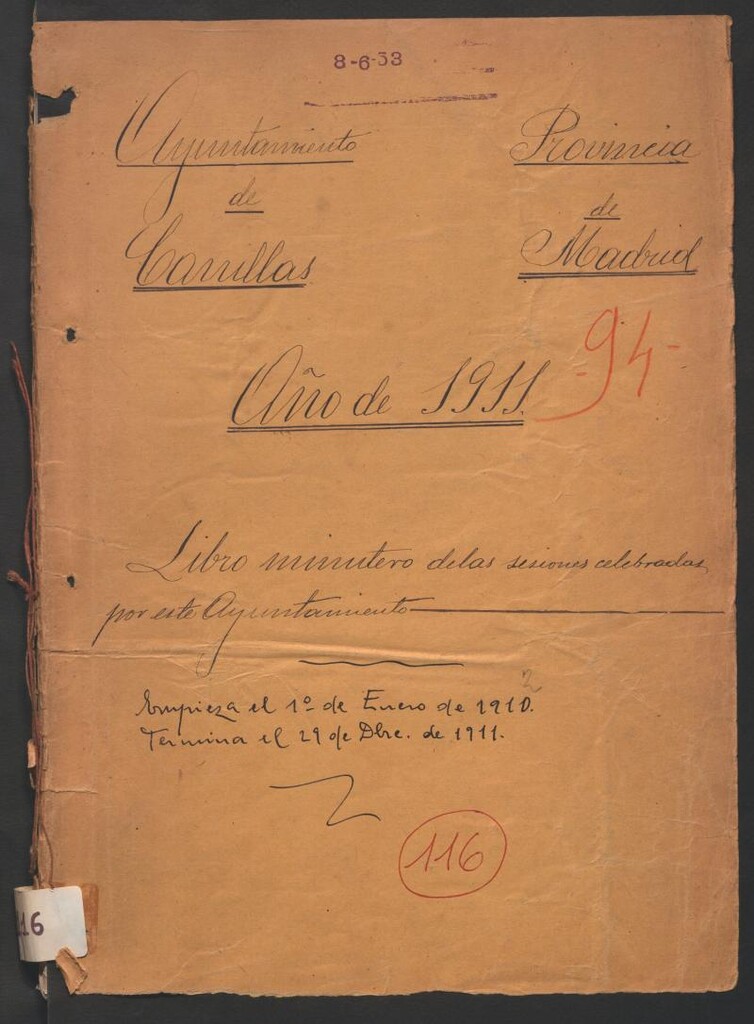 8-6-33
Ayuntamiento
de
Canillas
Provincia
de
Madrid
-94-
Año de 1911.
Libro minutero de las sesiones celebradas
por este Ayuntamiento
Empieza el 1º de Enero de 1910.
Termina el 29 de Dbre. de 1911.
116
116